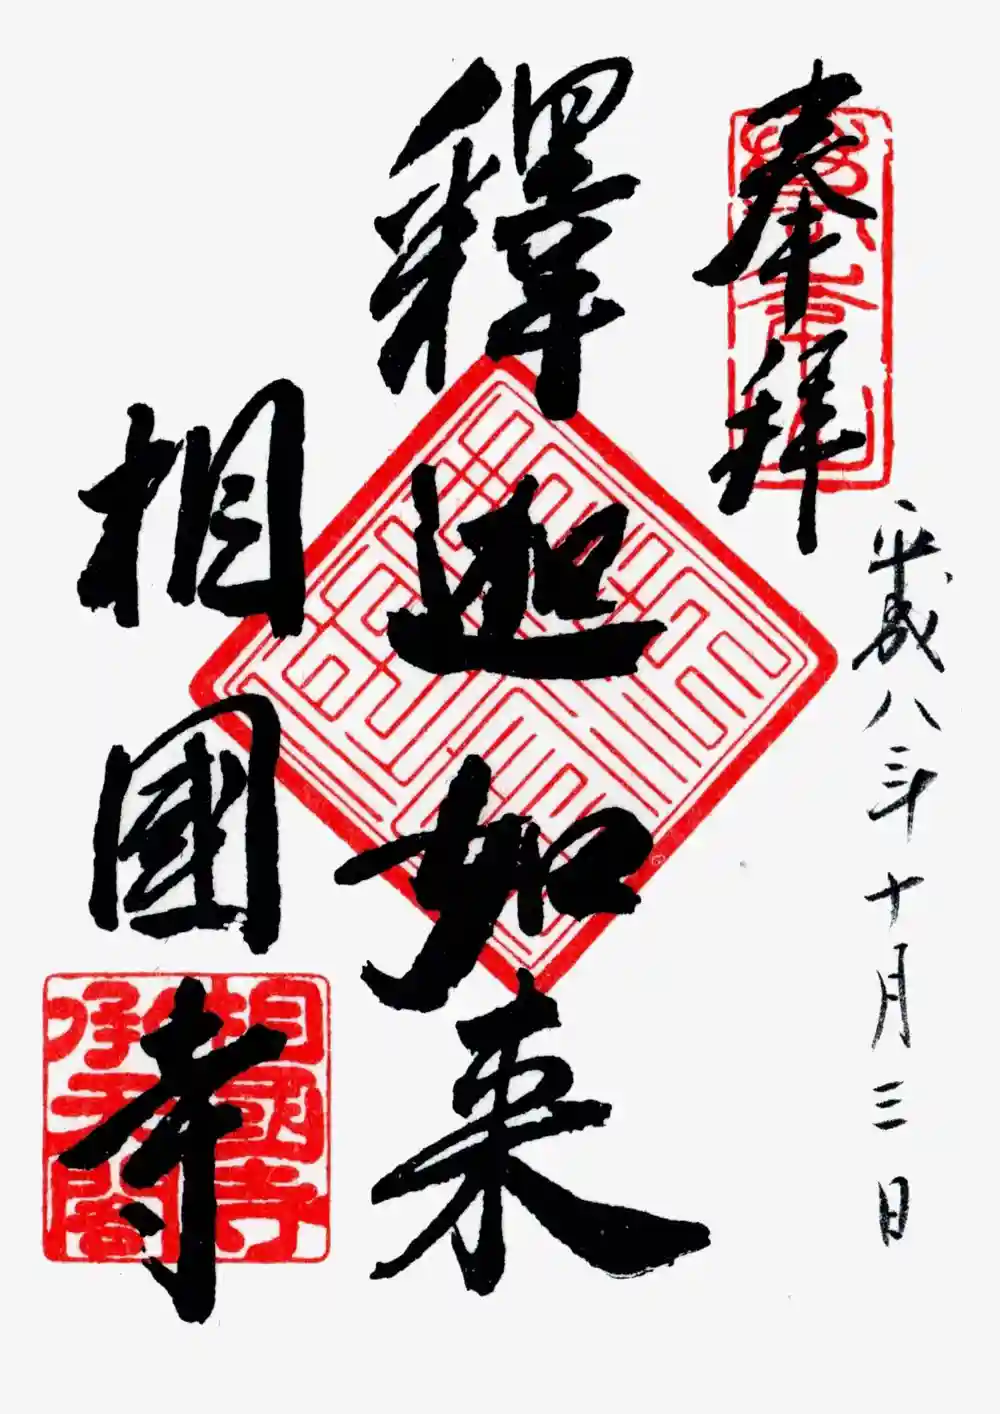 奉拝
平成八年十月三日
釋迦如来
相國寺
相國寺
承天閣